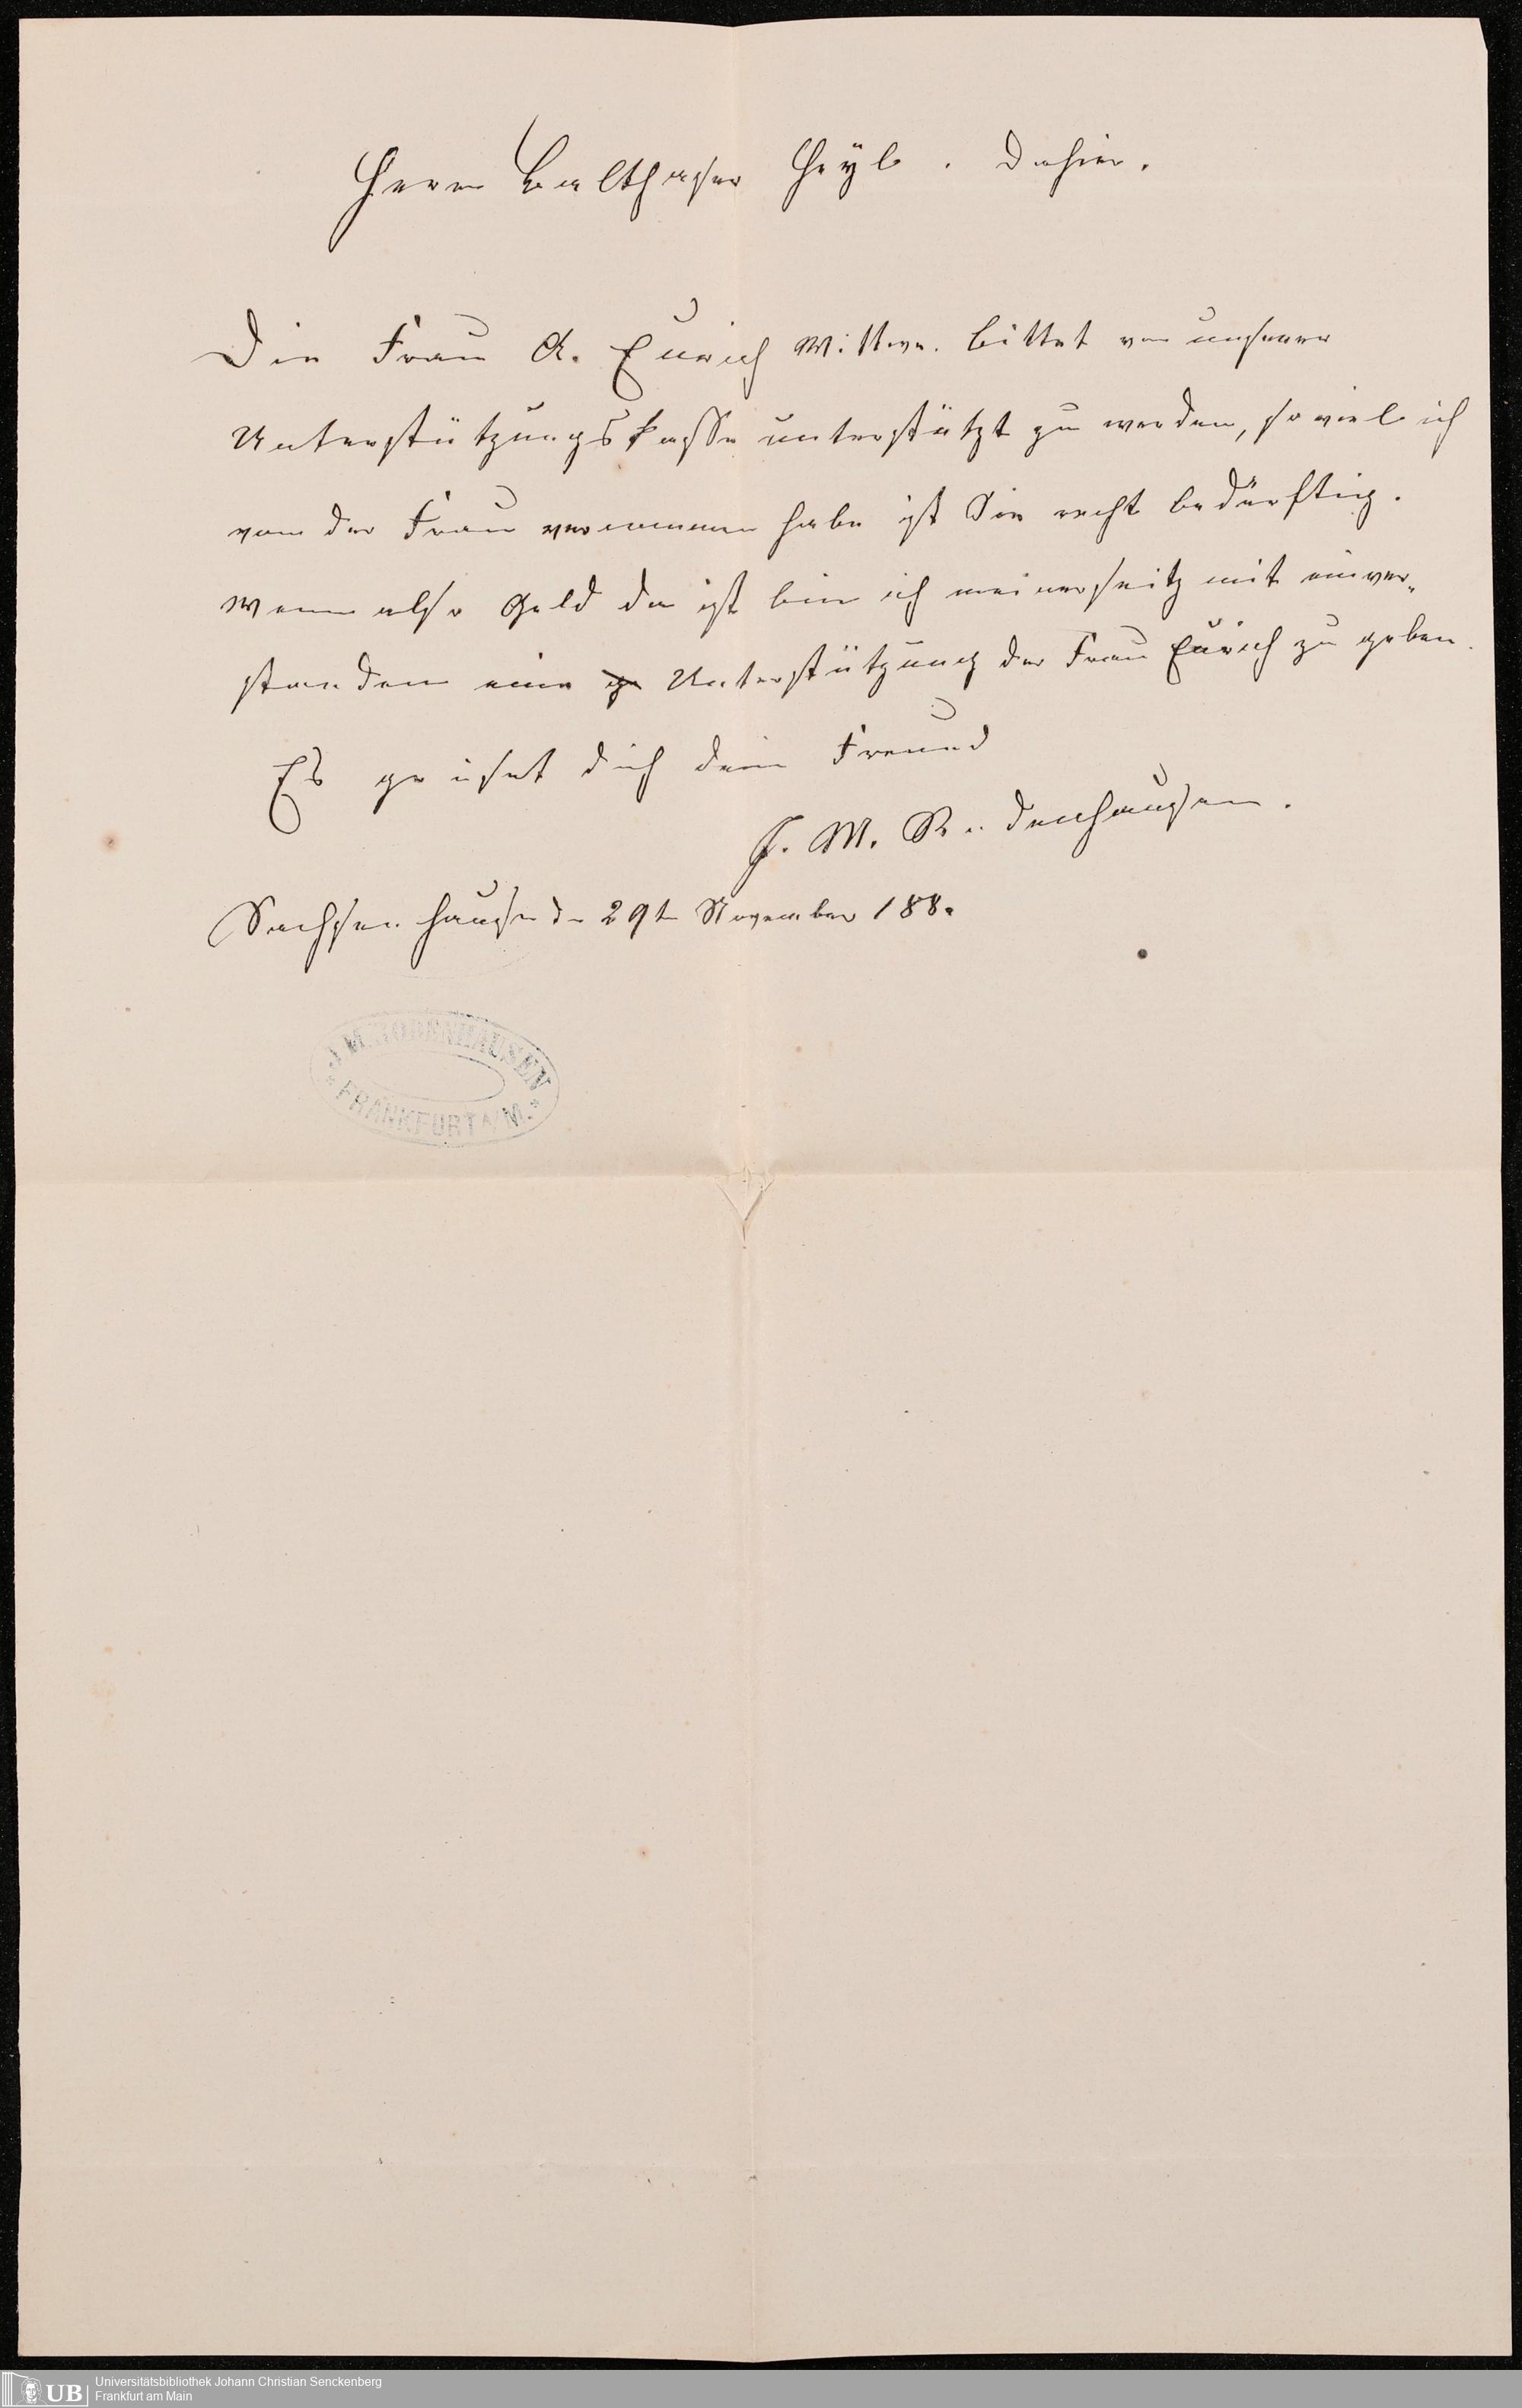 Herrn Balthaser Heyl. Dahier.
Die Frau A. Eurich Wittwe. bittet von unserer
Unterstützungskasse unterstützt zu werden, so viel ich
von der Frau vernommen habe ist Sie recht bedürftig.
Wenn also Geld da ist bin ich meinerseitz mit einver-
standen eine Unterstützung der Frau Eurich zu geben.
Es grüset dich dein Freund
J. M. Rodenhausen.
Sachsenhausen den 29t November 1880
J. M. RODENHAUSEN
* FRANKFURT A/M. *
UB
Universitätsbibliothek Johann Christian Senckenberg
Frankfurt am Main